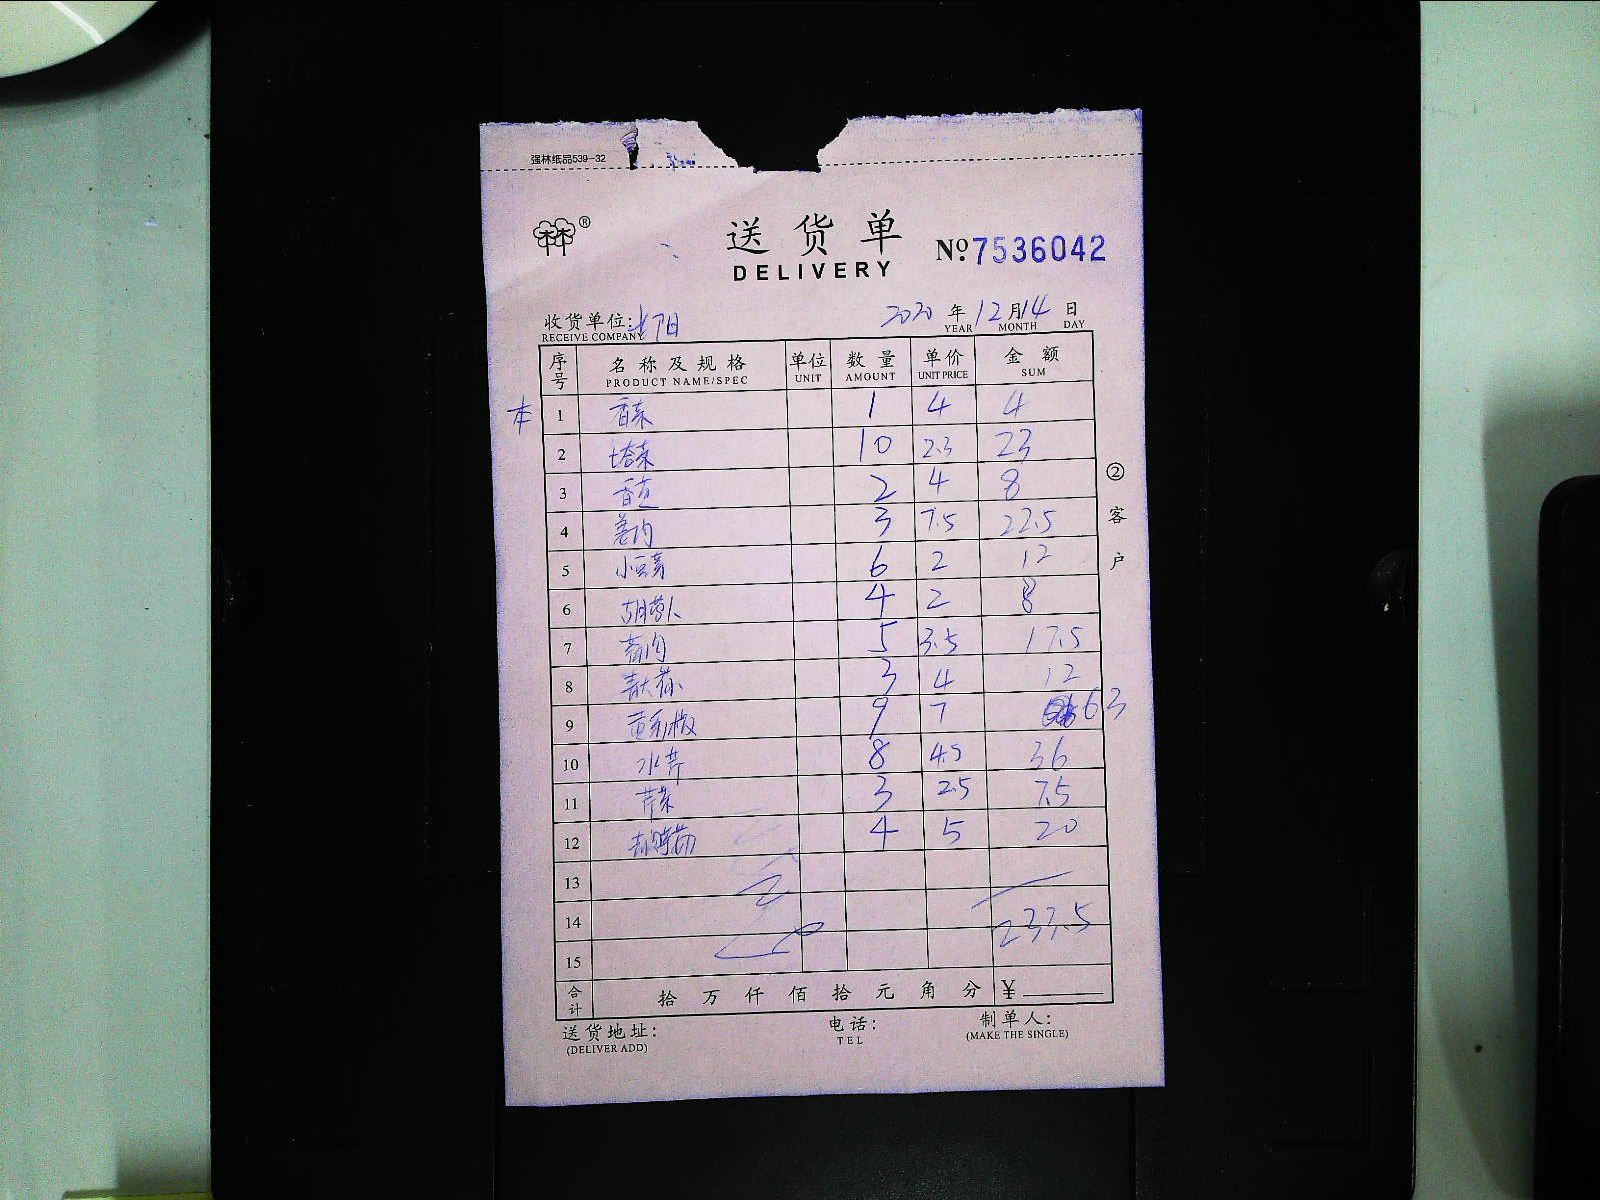 强林纸品539-32
林林®
送货单
DELIVERY
№7536042
收货单位:
RECEIVE COMPANY
2020 年 12 月 14 日
YEAR MONTH DAY
序号 名称及规格 单位 数量 单价 金额
PRODUCT NAME/SPEC UNIT AMOUNT UNIT PRICE SUM
本 1 香菜 1 4 4
2 塔菜 10 2.3 23
3 2 4 8
4 姜肉 3 7.5 22.5
5 小豆芽 6 2 12
6 胡萝卜 4 2 8
7 蒜肉 5 3.5 17.5
8 青大蒜 3 4 12
9 9 7 63
10 水芹 8 4.5 36
11 芹菜 3 2.5 7.5
12 4 5 20
13
14 233.5
15
合计 拾 万 仟 佰 拾 元 角 分 ¥
②客户
送货地址: 电话: 制单人:
(DELIVER ADD) TEL (MAKE THE SINGLE)